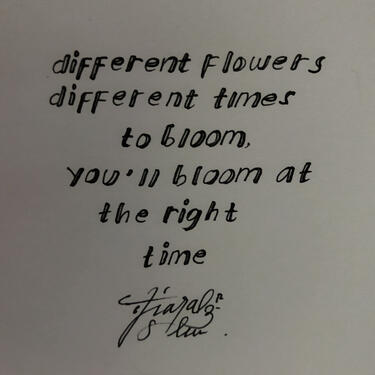 different flowers
different times
to bloom,
you'll bloom at
the right
time